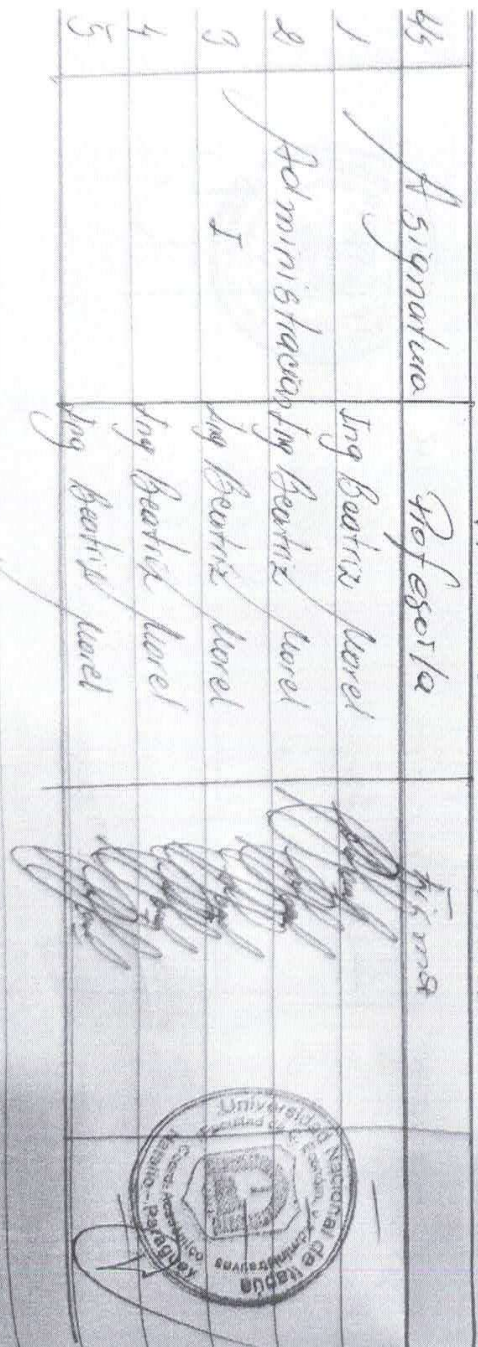 Hs Asignatura Profesor/a Firma
1 Ing Beatriz Morel
2 Administración Ing Beatriz Morel
3 I Ing Beatriz Morel
4 Ing Beatriz Morel
5 Ing Beatriz Morel
Universidad Nacional de Itapúa
Facultad de C. Económ. y Administrativas
Natalio - Paraguay